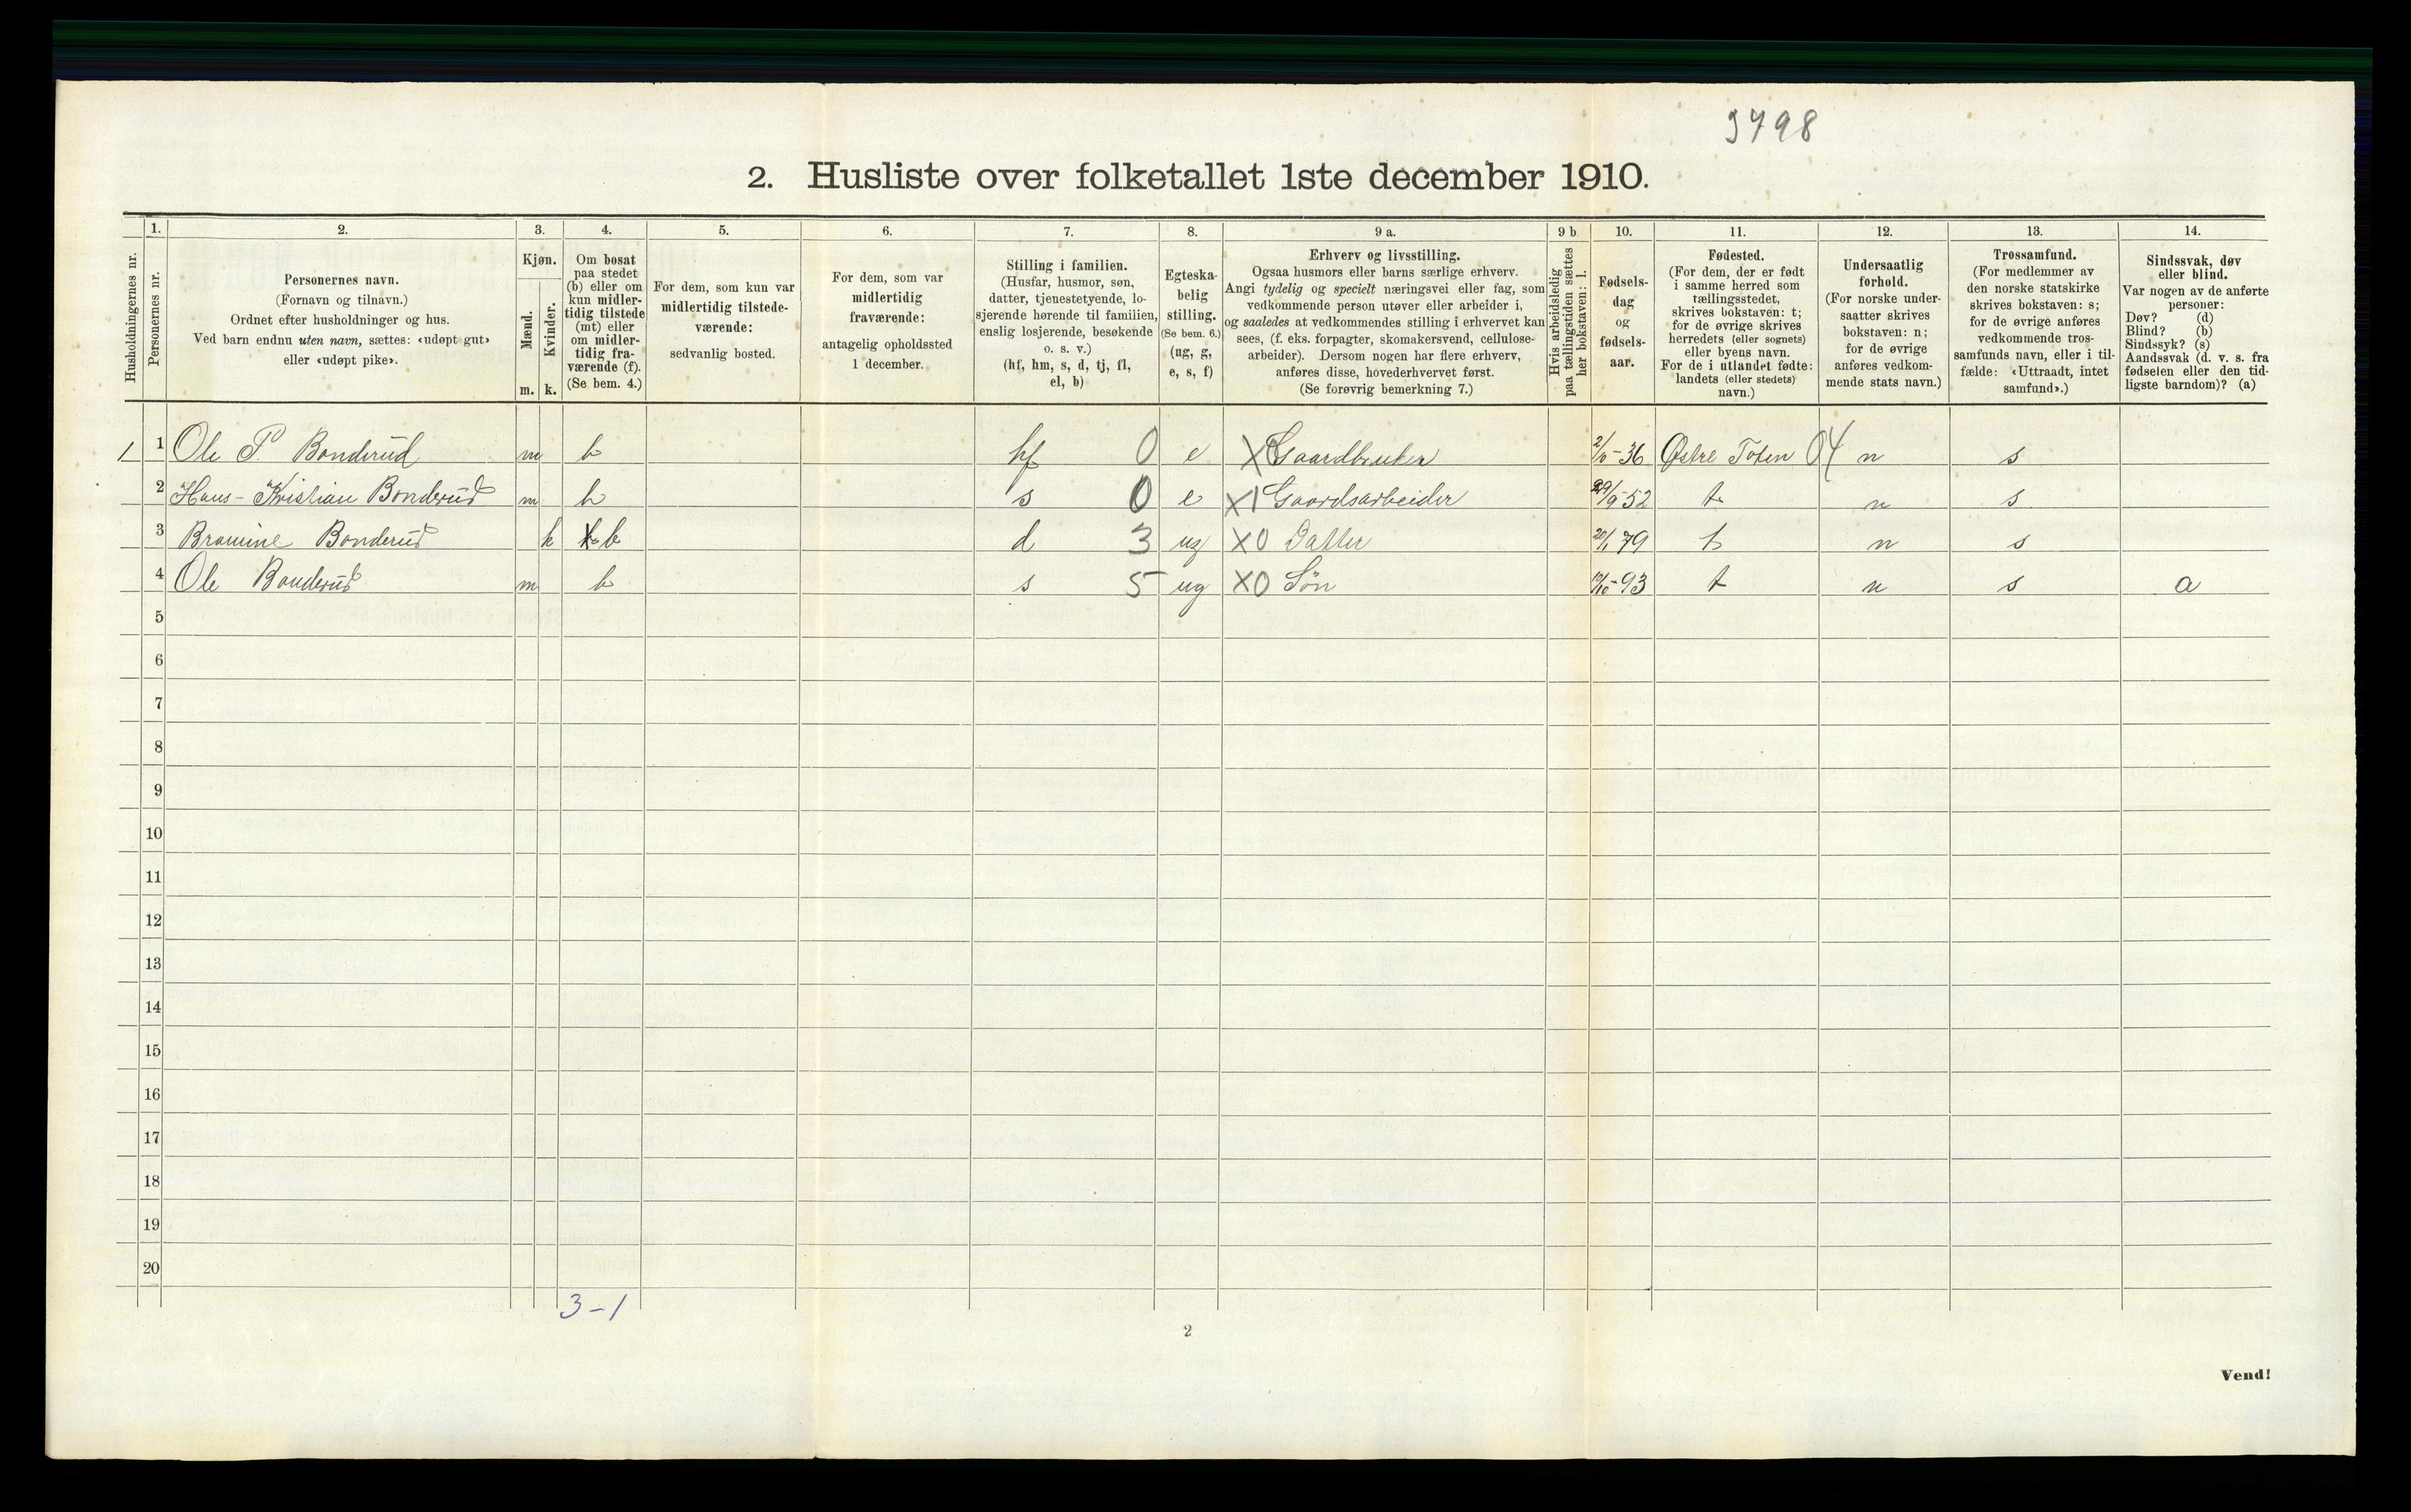 3798
2. Husliste over folketallet 1ste december 1910.
Husholdningernes nr.
1.
Personernes nr.
2.
Personernes navn.
(Fornavn og tilnavn.)
Ordnet efter husholdninger og hus.
Ved barn endnu uten navn, sættes: «udøpt gut»
eller «udøpt pike».
3.
Kjøn.
Mænd.
Kvinder.
m. k.
4.
Om bosat
paa stedet
(b) eller om
kun midler-
tidig tilstede
(mt) eller
om midler-
tidig fra-
værende (f).
(Se bem. 4.)
5.
For dem, som kun var
midlertidig tilstede-
værende:
sedvanlig bosted.
6.
For dem, som var
midlertidig
fraværende:
antagelig opholdssted
1 december.
7.
Stilling i familien.
(Husfar, husmor, søn,
datter, tjenestetyende, lo-
sjerende hørende til familien,
enslig losjerende, besøkende
o. s. v.)
(hf, hm, s, d, tj, fl,
el, b)
8.
Egteska-
belig
stilling.
(Se bem. 6.)
(ug, g,
e, s, f)
9 a.
Erhverv og livsstilling.
Ogsaa husmors eller barns særlige erhverv.
Angi tydelig og specielt næringsvei eller fag, som
vedkommende person utøver eller arbeider i,
og saaledes at vedkommendes stilling i erhvervet kan
sees, (f. eks. forpagter, skomakersvend, cellulose-
arbeider). Dersom nogen har flere erhverv,
anføres disse, hovederhvervet først.
(Se forøvrig bemerkning 7.)
9 b.
Hvis arbeidsledig
paa tællingstiden sættes
her bokstaven: l.
10.
Fødsels-
dag
og
fødsels-
aar.
11.
Fødested.
(For dem, der er født
i samme herred som
tællingsstedet,
skrives bokstaven: t;
for de øvrige skrives
herredets (eller sognets)
eller byens navn.
For de i utlandet fødte:
landets (eller stedets)
navn.)
12.
Undersaatlig
forhold.
(For norske under-
saatter skrives
bokstaven: n;
for de øvrige
anføres vedkom-
mende stats navn.)
13.
Trossamfund.
(For medlemmer av
den norske statskirke
skrives bokstaven: s;
for de øvrige anføres
vedkommende tros-
samfunds navn, eller i til-
fælde: «Uttraadt, intet
samfund».)
14.
Sindssvak, døv
eller blind.
Var nogen av de anførte
personer:
Døv? (d)
Blind? (b)
Sindssyk? (s)
Aandssvak (d. v. s. fra
fødselen eller den tid-
ligste barndom)? (a)
1 1 Ole P. Bonderud m b hf 0 e X Gaardbruker 2/10-36 Østre Toten 04 n s
2 Hans-Kristian Bonderud m b s 0 e X1 Gaardsarbeider 29/9-52 t n s
3 Bramine Bonderud k b d 3 ug X0 Datter 20/1 79 t n s
4 Ole Bonderud m b s 5 ug X0 Søn 10/10-93 t n s a
5
6
7
8
9
10
11
12
13
14
15
16
17
18
19
20
3-1
2
Vend!